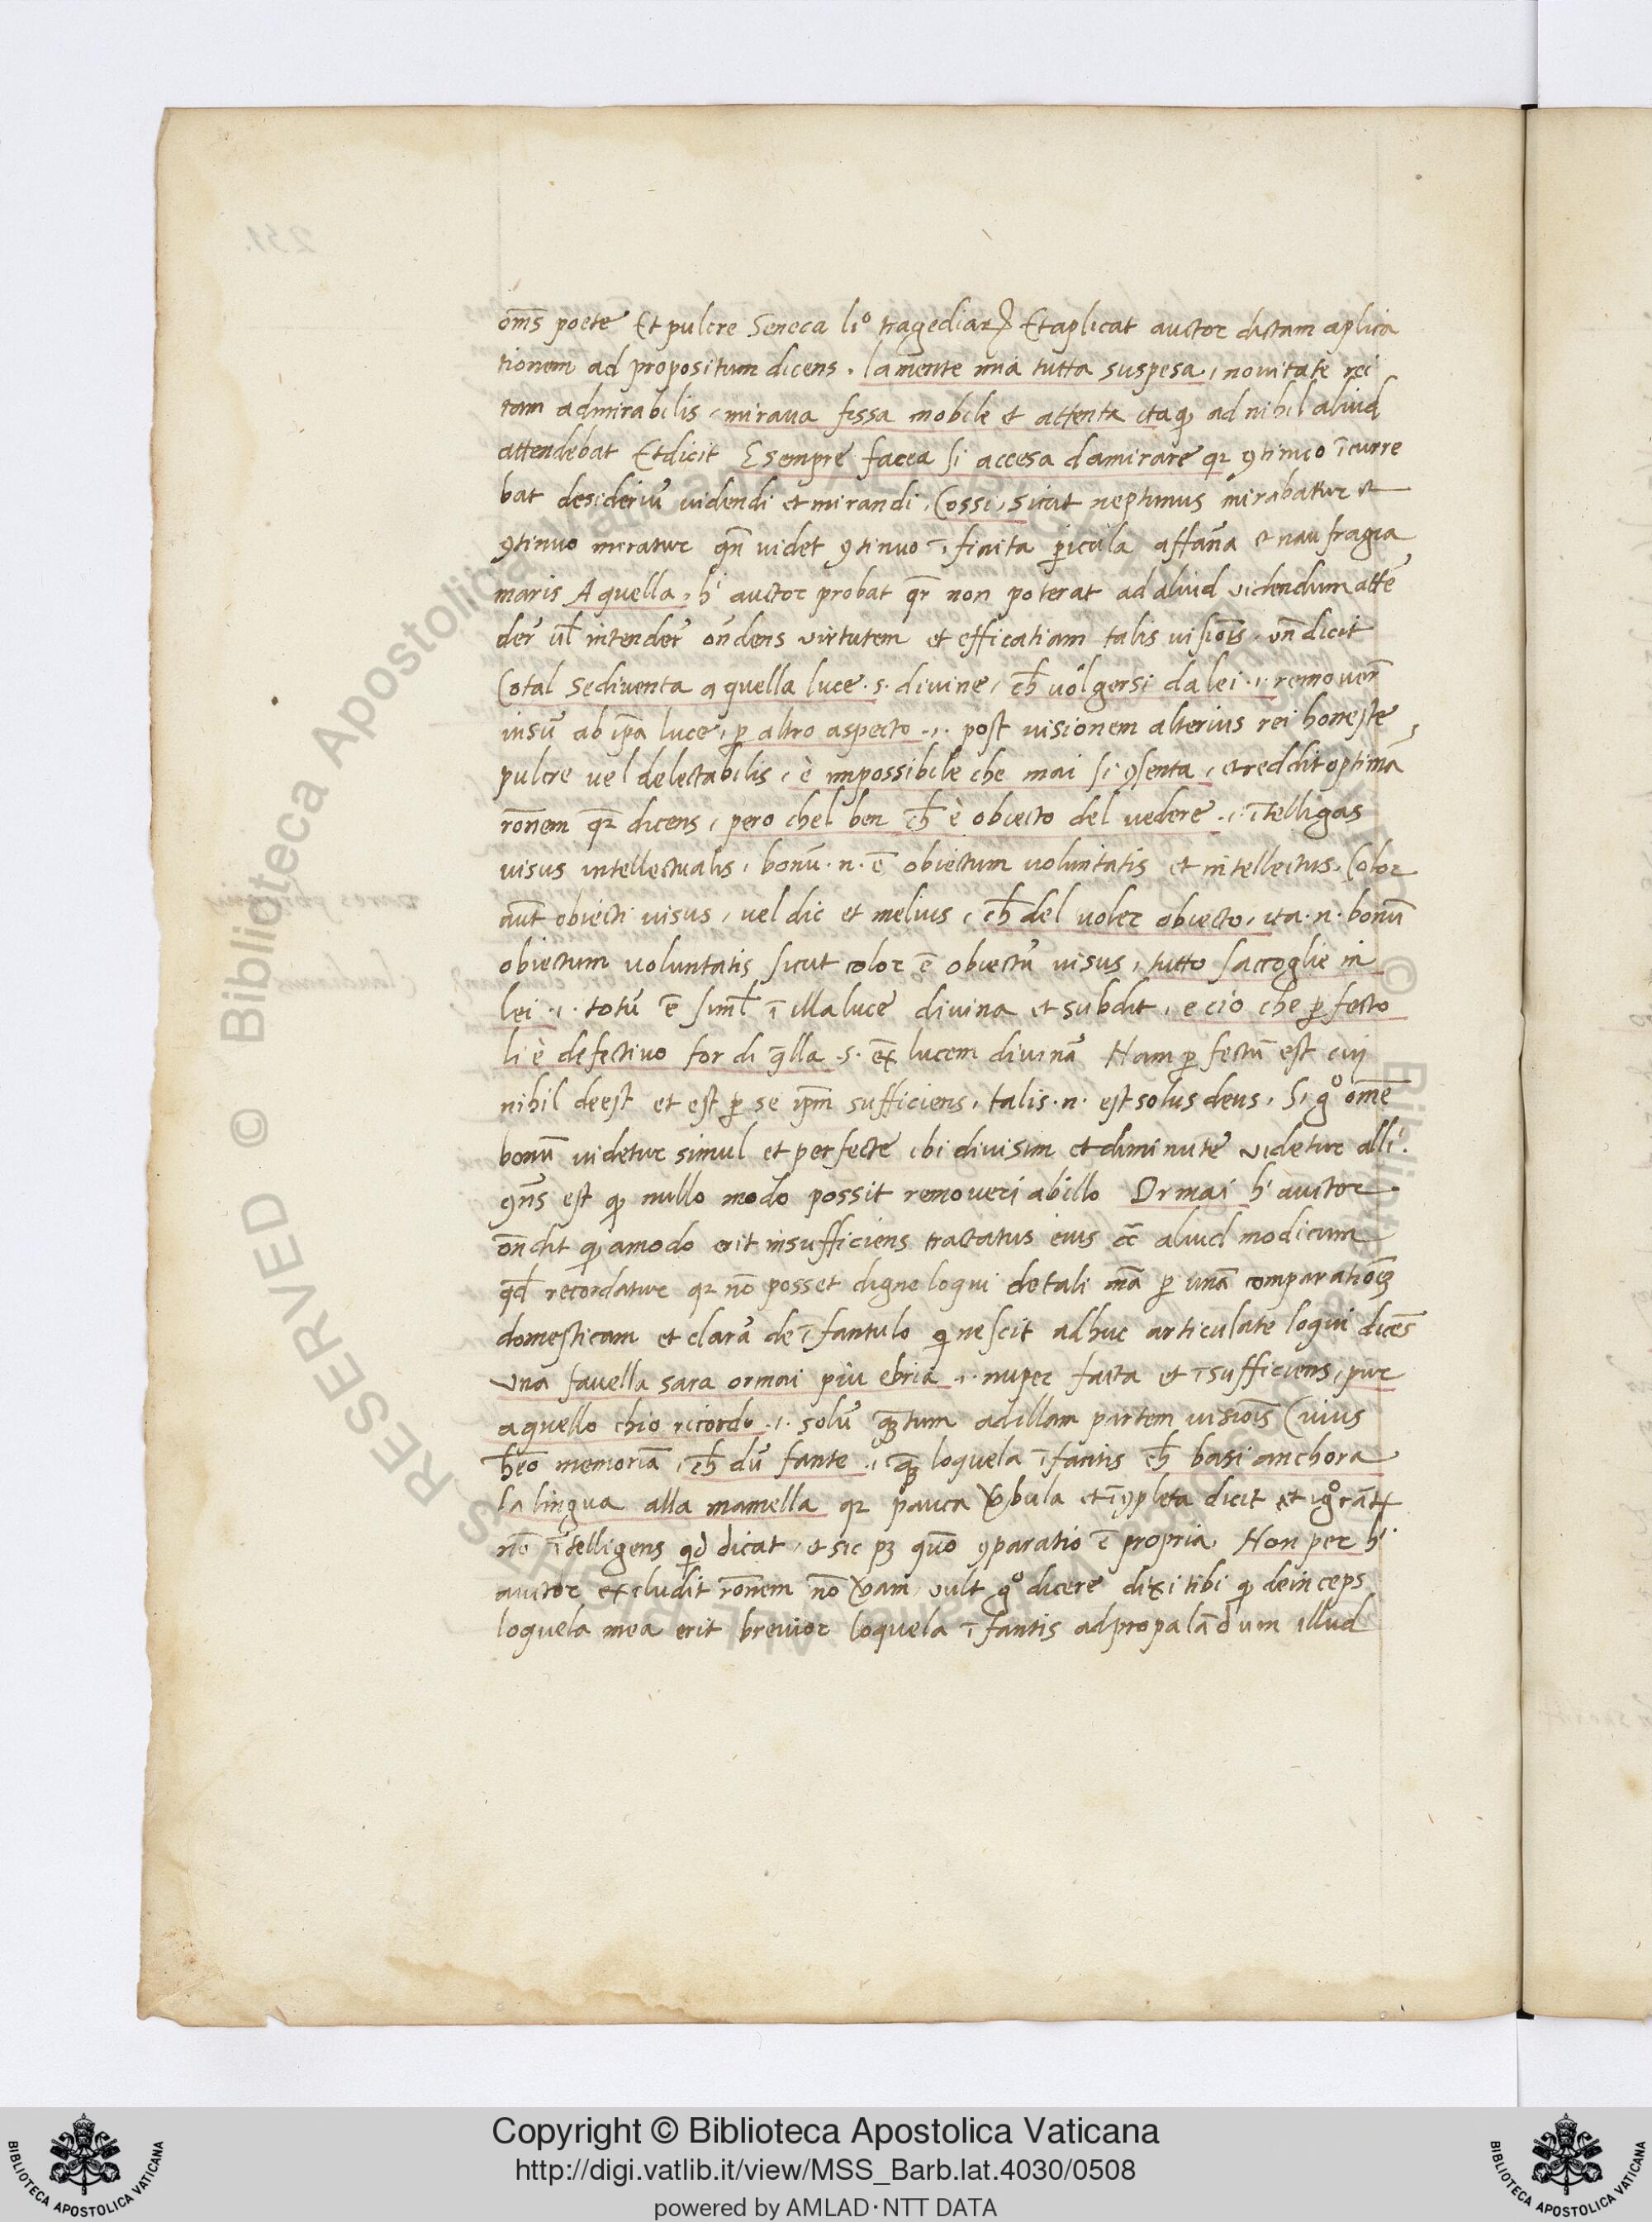 om̄s poete Et pulcre Seneca li.º tragediarꝝ Et aplicat auctor dictam aplica
tionem ad propositum dicens. la mente mia tutta suspesa, novitate rei
tam admirabilis, mirava fissa mobile et attenta itaqꝫ ad nihil aliud
attendebat Et dicit E sempre facea si accesa damirare qꝛ ꝯtinuo īcurre
bat desideriū videndi et mirandi, Cossi, sicut neptunus mirabatur et
ꝯtinuo miratur qn̄ videt ꝯtinuo īfinita ꝑicula affāna et naufragia
maris A quella, hⁱ auctor probat qr̄ non poterat ad aliud videndum attē
der̄ vl̄ intender̄ on̄dens virtutem et efficatiam talis visiōis. vn̄ dicit
Cotal sediventa a quella luce .s. divine, cħ volgersi da lei .i. remover̄
visū ab ip̄a luce, ꝑ altro aspecto .i. post visionem alterius rei honeste
pulcre vel delectabilis, è impossibile che mai si ꝯsenta, et reddit optimā
rōnem qꝛ dicens, pero chel ben cħ è obiecto del vedere .i. ītelligas
visus intellectualis, bonū .n. ē obiectum voluntatis et intellectus, Color
aūt obiecti visus, vel dic et melius, cħ del voler obiecto, ita .n. bonū
obiectum voluntatis sicut color ē obiectū visus, tutto saccoglie in
lei .i. totū ē siml̄ ī illa luce divina et subdit, e cio che ꝑfecto
li è defectivo for di q̄lla .s. ex̄ lucem divinā Nam ꝑfectū est cui
nihil deest et est ꝑ se ip̄m sufficiens, talis .n. est solus deus, Si gº om̄e
bonū videtur simul et perfecte ibi divisim et diminute videtur alli.
ꝯn̄s est qꝫ nullo modo possit removeri ab illo Ormai hⁱ auctor
on̄dit qꝫ amodo erit insufficiens tractatus eius cc̄ aliud modicum
qd̄ recordatur qꝛ nō posset digne loqui de tali mā ꝑ unā comparatiōꝫ
domesticam et clarā de īfantulo qⁱ nescit adhuc articulate loqui dicēs
Una favella sara ormai piu ebria .i. nuper facta et īsufficiens, pur
a quello chio ricordo .i. solū qꝫtum ad illam partem visiōis Cuius
hēo memoriā, cħ dū fante .i. qꝫ loquela īfantis cħ basi anchora
la lingua alla mamella qꝛ pauca v̄bula et īꝯpleta dicit et igºrāt
nō ītelligens qd̄ dicat, et sic pꝫ quō ꝯparatio ē propria, Non per hⁱ
auctor excludit rōnem nō v̄am vult gº dicere dixi tibi qꝫ deinceps
loquela mea erit brevior loquela īfantis ad propalādum illud
Copyright © Biblioteca Apostolica Vaticana
http://digi.vatlib.it/view/MSS_Barb.lat.4030/0508
powered by AMLAD·NTT DATA